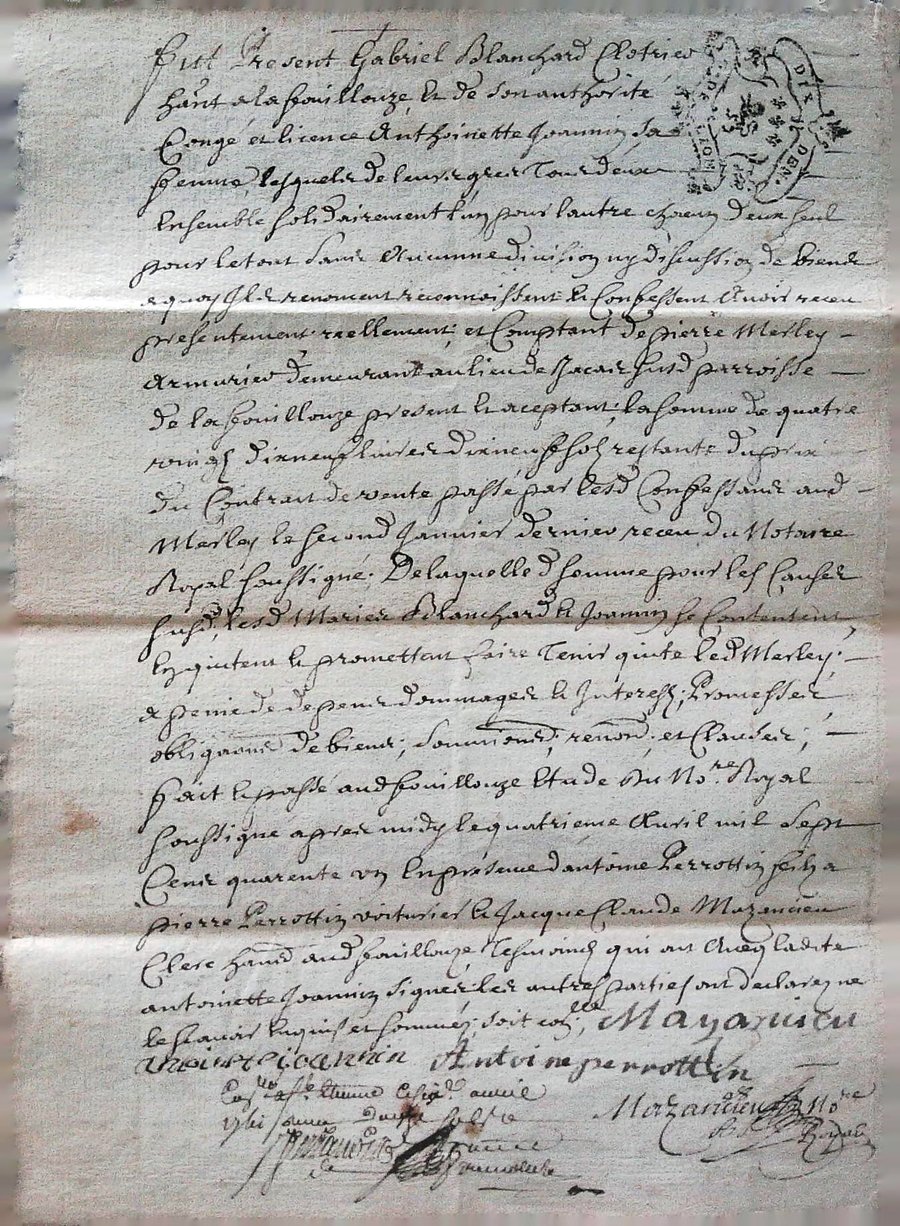 Fut Present Gabriel Blanchard Clotrier
DIX DEN.
DE LION
hant a la fouillouze et de son authorité
Congé et licence Anthoinette Joannin sa
femme, lesquels de leurs grez Tous deux
Ensemble solidairement l'un pour lautre chacun deux seul
pour le tout sans Aucunne division ny discustion de biens
a quoy Ils renoncent reconnoissent et Confessent Avoir receu
presentement reellement, et Comptant de pierre Merley
Armurier demeurant au lieu de susd parroisse
de la fouillouze present et aceptant, la somme de quatre
vingt dixneuf livres dixneuf solz restants du prix
du Contrait de vente passé par lesd Confessants aud
Merley le second Janvier dernier receu du Notaire
Royal soussigné. De laquelle d somme pour les Causes
susd, lesd Mariez Blanchard et Joannin se Contentent,
En quitent et promettent faire Tenir quite led Merley,
a peine de depens dommages et Interestz, Promesses
obligaons de biens, soumions, renons, et Clauses,
fait et passé aud fouillouze Etude du No.re Royal
soussigné apres midy le quatrieme Avril mil Sept
Cens quarente un En presence d'antoine Perrottin fils a
pierre Perrottin voiturier et Jacque Claude Mazancieu
Clerc hants aud fouillouze Tesmoins qui ont Avec ladite
antoinette Joannin signés, les autres parties ont declarez ne
le scavoir Enquis et sommez, soit con.lle Mazancieu
Joannin Antoine perrottin
avril
Mazancieu No.re
Royal